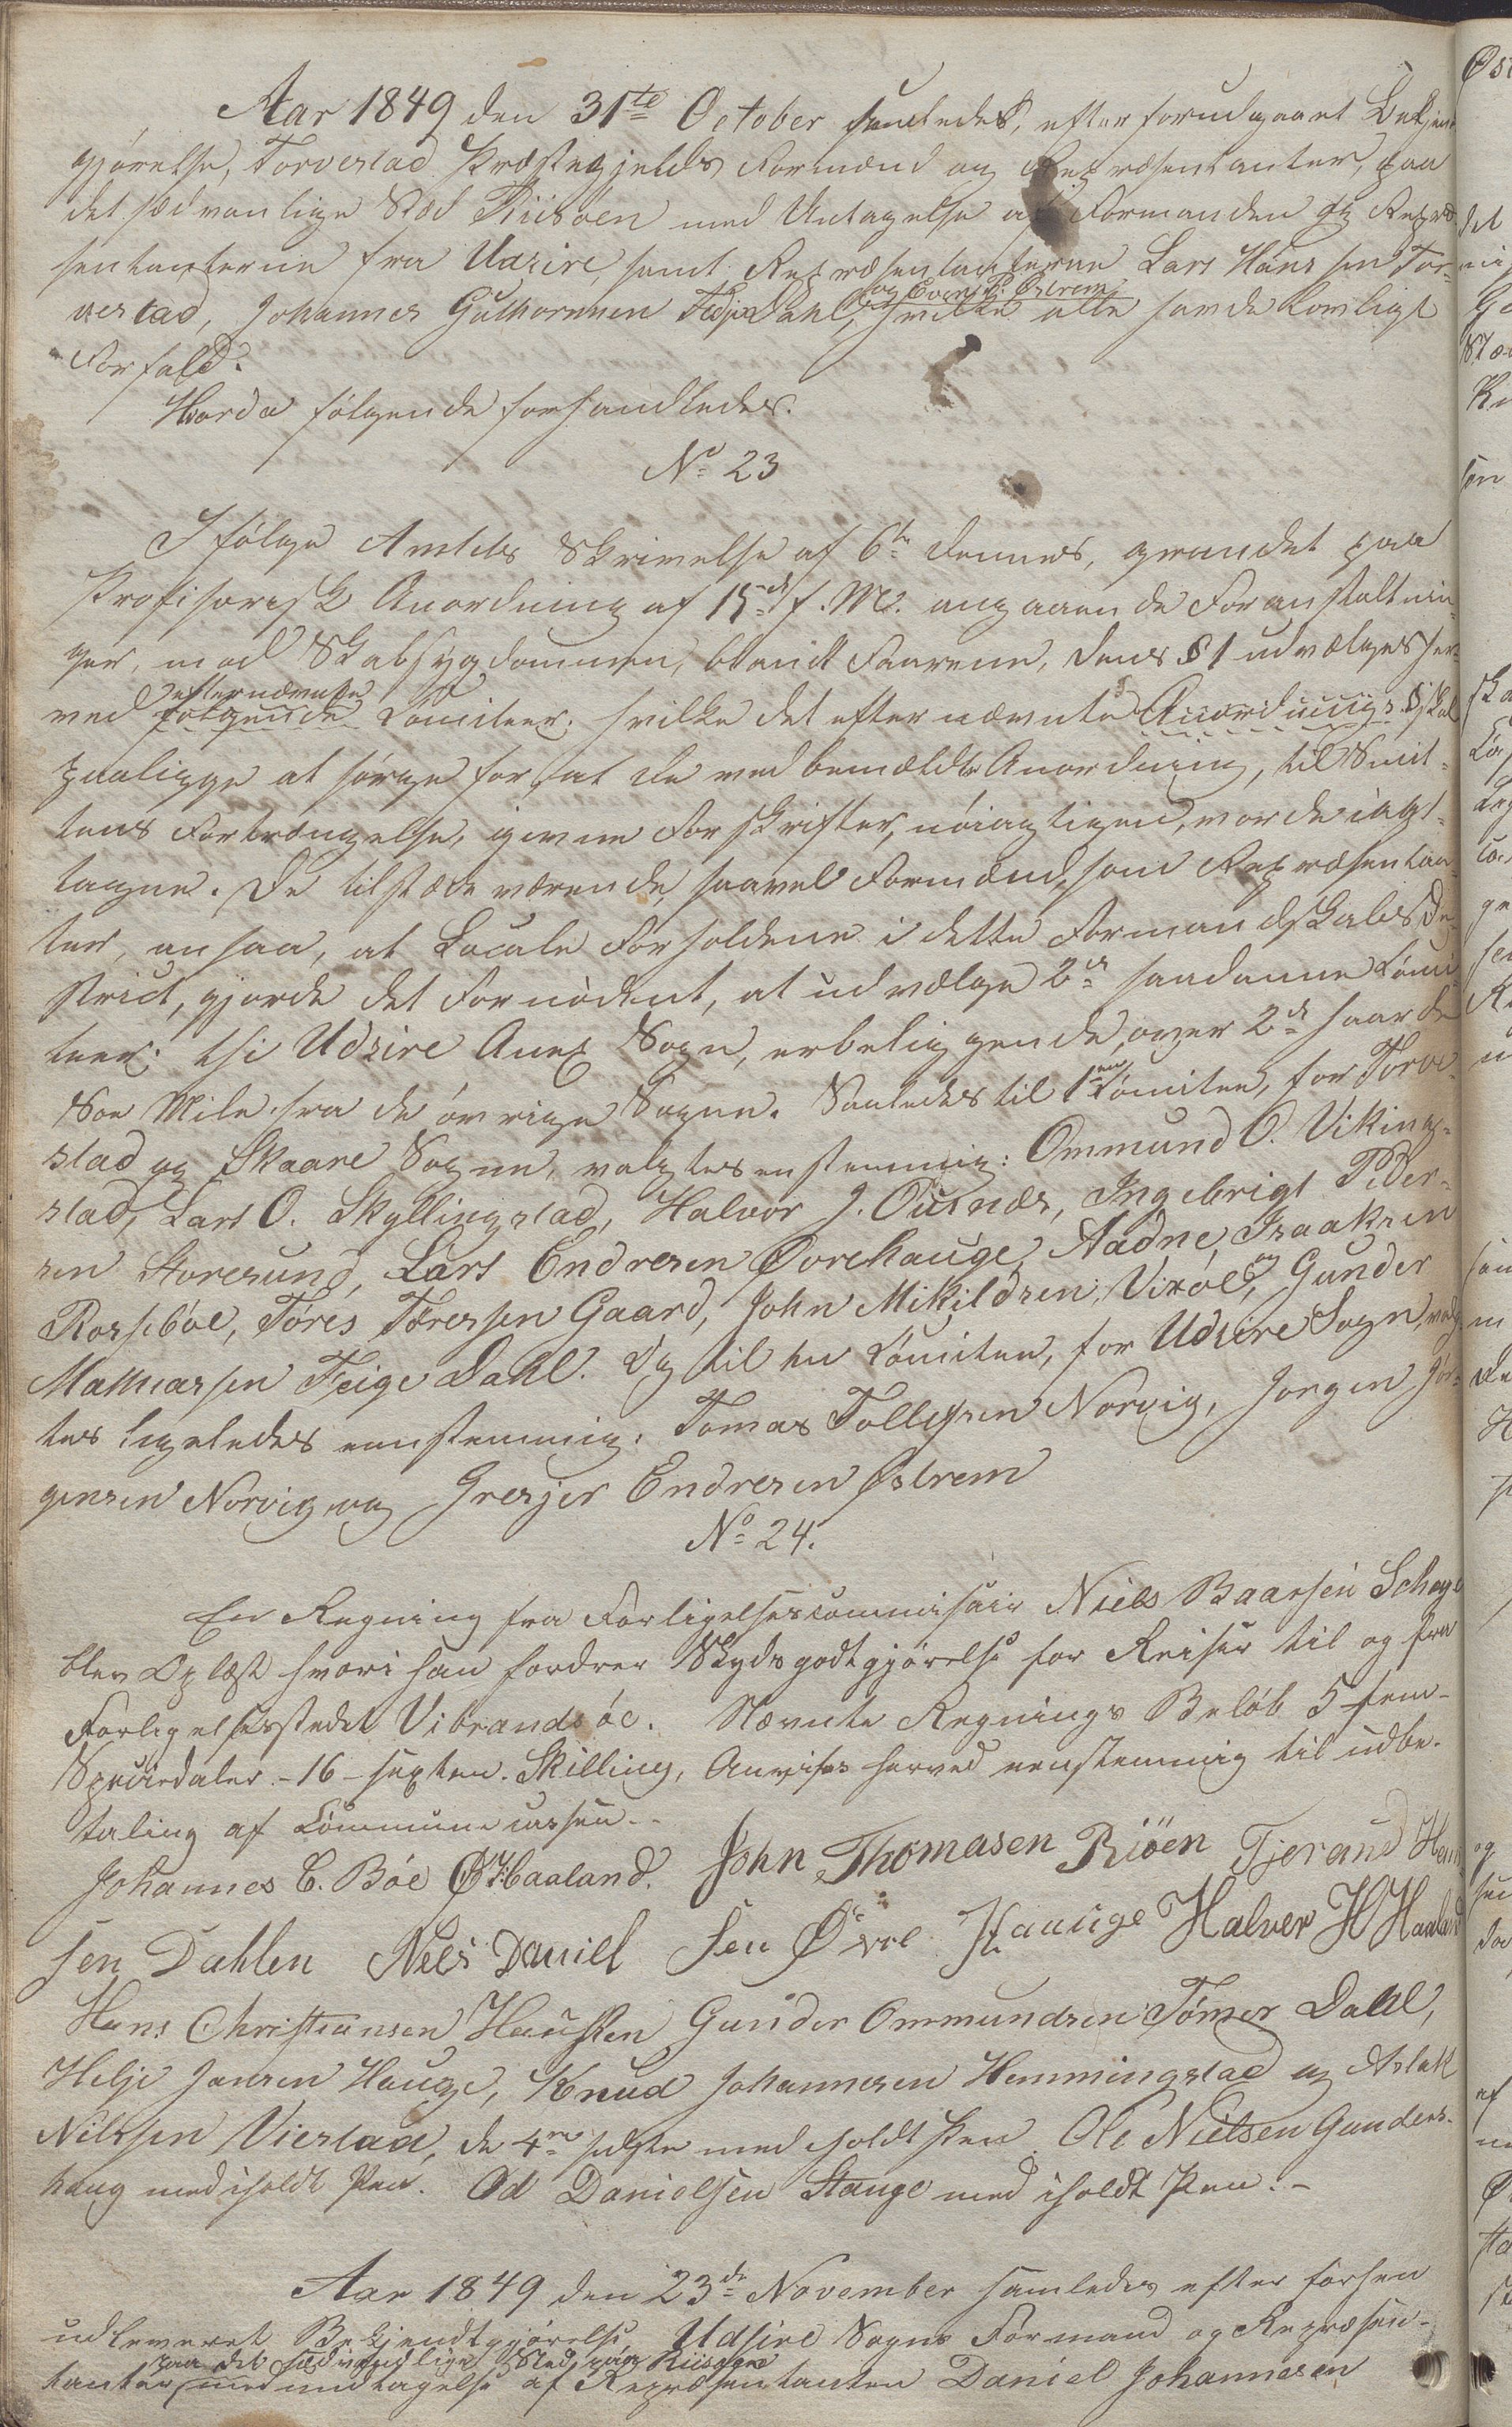 Aar 1849 den 31te October samledes, efter forudgaaet Bekjent
gjørelse, Torvestad Præstegjelds Formænd og Repræsentanter, paa
det sædvanlige Stæd Riisøen med Untagelse af Formanden og Repræ
sentanterne fra Udzire, samt Repræsentanterne Lars Hansen Tor-
vestad, Johannes Guthormsen Feigedahl, og Evert P. Østrem hvilke alle havde Lovligt
Forfald.
Hvorda følgende forhandledes.
No 23
Ifølge Amtets Skrivelse af 6te dennes, grundet paa
Profisorisk Anordning af 15de f. M. angaaende Foranstaltnin-
ger, mod Skabsygdommen, blandt Faarene, dens § 1 udvælges her-
ved følgende efternævnte Comiteer. hvilke det efternævnte Anordnings § skal
paaligge at sørge for at de ved bemældte Anordning, til Smit-
tens Fortrængelse, givne Forskrifter, nøiagtigen, vorde iagt-
tagne. De tilstædeværende, saavel Formænd, som Repræsentan-
ter, ansaa, at Locale Forholdene i dette Formandskabs Di-
strict, gjorde det Fornødent, at udvælge 2de saadanne Comi
teer: thi Udzire Anex Sogn, er beliggende, over 2de haarde
Søe Mile fra de øvrige Sogne. Saaledes til 1em Comiteen, for Torve-
stad og Skaare Sogne, valgtes enstemmig: Ommund O. Viking-
stad, Lars O. Skyllingstad, Halvor J. Ousnæs, Ingebrigt Peder-
sen Storesund, Lars Endresen Øvrehauge, Aadne Isaaksen
Rossebøe, Tøres Tøressen Gaard, John Mikildsen Vixøe, og Gunder
Mathiassen Feige Dahl. Og til en Comitee, for Udzire Sogn, valg
tes ligeledes eenstemmig. Tomas Tollefsen Norvig, Jorgen Jør-
gensen Norvig og Gresjer Endresen Østrem
No 24.
En Regning fra Forligelsescommisair Niels Baarsen Schage
blev Oplæst hvori han fordrer Skydsgodtgjørelse for Reiser til og fra
Forligelsesstedet Vibrandsøe. Nævnte Regnings Beløb 5 fem-
Speciedaler - 16 - sexten. Skilling, Anvises herved eenstemmig til udbe-
taling af Communecassen.-
Johannes C. Bøe Ø. Haaland. John Thomasen Riöen Tjerand Han-
sen Dahlen Nels Daniel sen Øvre Haauge Halver H Haaland
Hans Christiansen Hausken Gunder Ommundsen Tømer Dahl,
Helje Jansen Hauge, Knud Johannesen Hemmingstad og Aslak
Nilssen Vierstad, de 4re sidste med iholdt Pen. Ole Nielsen Gunders-
haug med iholdt Pen. Od Danielsen Stange med iholdt Pen.-
Aar 1849 den 23de November samledes efter forhen
udleveret Bekjendtgjørelse, Udsire Sogns Formand og Repræsen-
paa det sædvandlige Sted paa Riisøen
tanter med undtagelse af Repræsentanten Daniel Johannesen